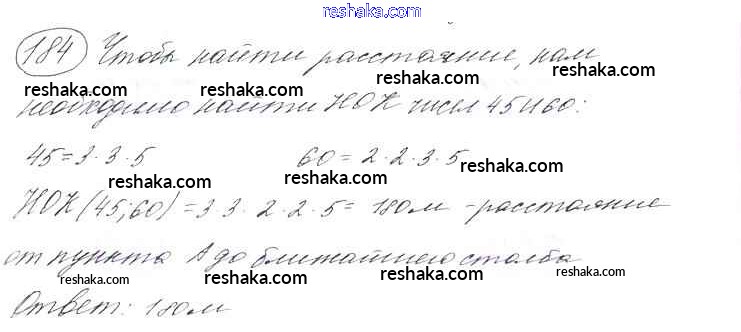 www.reshaka.com
184 Чтобы найти расстояние, нам
reshaka.com reshaka.com reshaka.com
необходимо найти НОК чисел 45 и 60:
reshaka.com
45=3·3·5 60=2·2·3·5
reshaka.com reshaka.com
НОК(45;60)=3·3·2·2·5=180м -расстояние
reshaka.com reshaka.com
от пункта А до ближайшего столба
reshaka.com reshaka.com reshaka.com
Ответ: 180м
www.reshaka.com